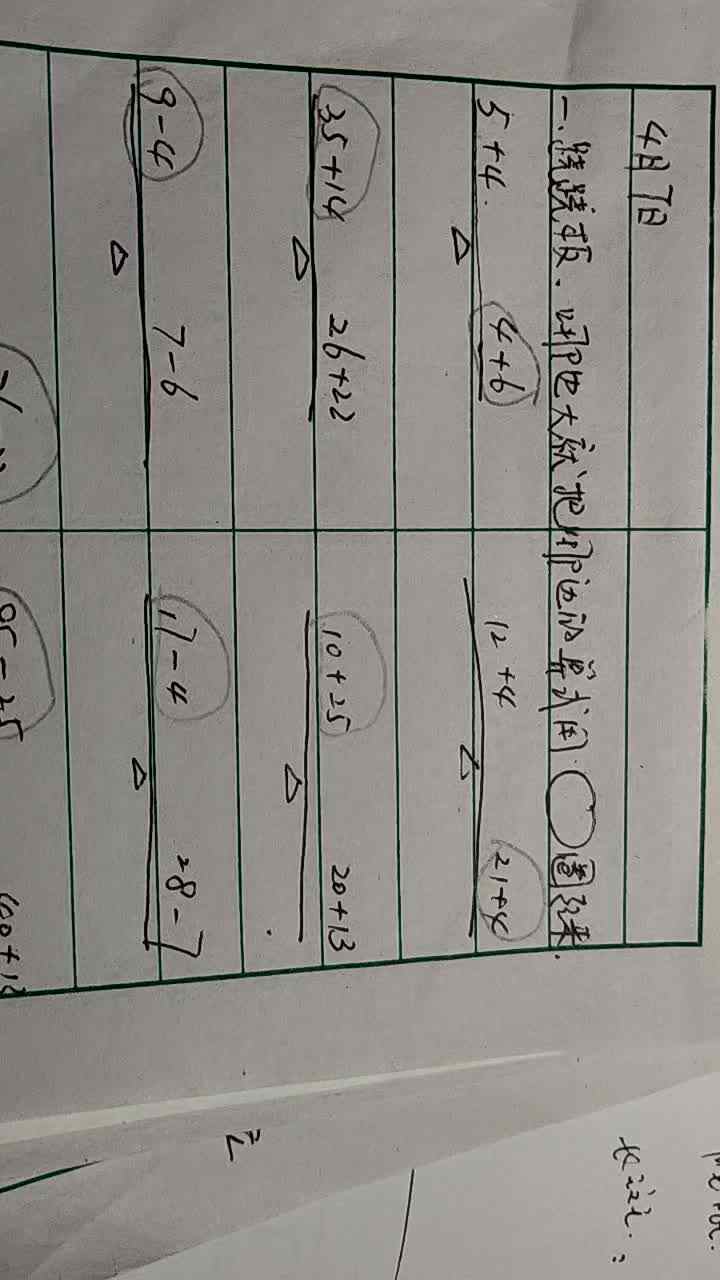 4月7日
一.跷跷板.哪边大就把哪边的算式用○圈起来.
5+4. 4+6 12+4 21+4
35+14 26+22 10+25 20+13
9-4 7-6 17-4 28-7